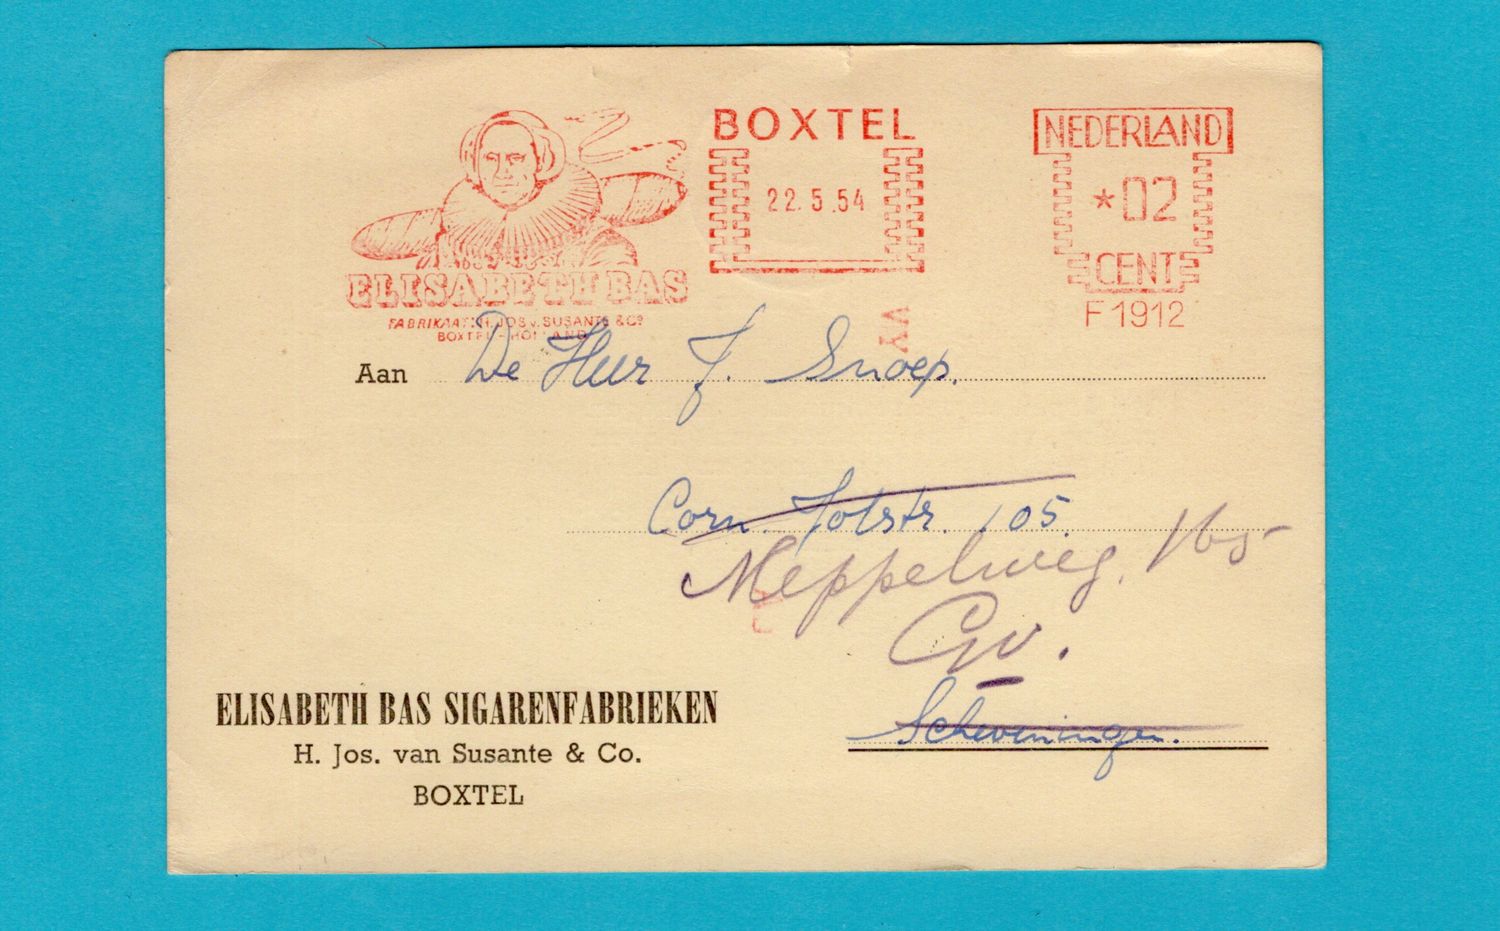 BOXTEL
22.5.54
NEDERLAND
*02
CENT
F 1912
ELISABETH BAS
FABRIKAAT: H. JOS. v. SUSANTE & Co
BOXTEL - HOLLAND
Aan De Heer J. Snoep.
Corn. Jolstr. 105.
Meppelweg. 165
Gv.
Scheveningen.
ELISABETH BAS SIGARENFABRIEKEN
H. Jos. van Susante & Co.
BOXTEL